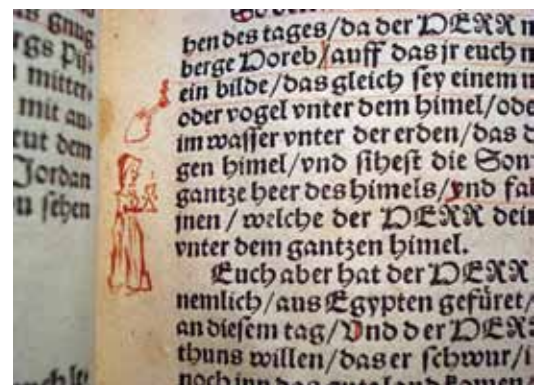 gnug
rgs Piſ=
mitter=
mit an=
dem
Jordan
ſehen
hen des tages/da der HERR
berge Horeb/auff das jr euch
ein bilde/das gleich ſey einem
oder vogel vnter dem himel/ode
im waſſer vnter der erden/das d
gen himel/vnd ſiheſt die Son
gantze heer des himels/vnd fal
jnen / welche der HERR dein
vnter dem gantzen himel.
Euch aber hat der HERR
nemlich/aus Egypten gefüret/
an dieſem tag/Vnd der HERR
thuns willen/das er ſchwur/i
noch jnn das gute land komen